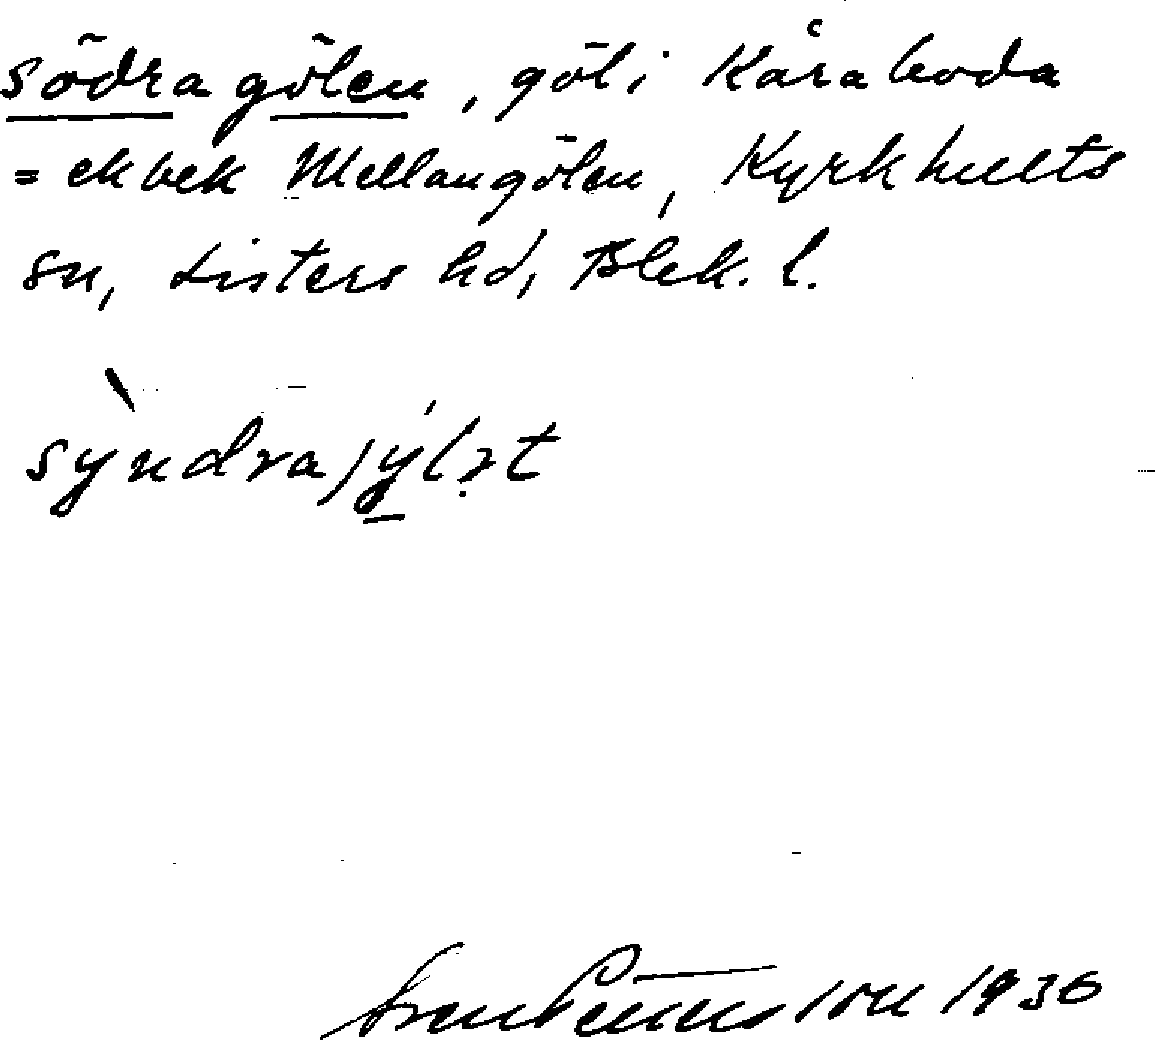 södra gölen, göl i Kåraboda
= ekbek Mellangölen, Kyrkhults
sn, Listers hd, Blek. l.
sỳndrajýlət
Sven Benson 1936